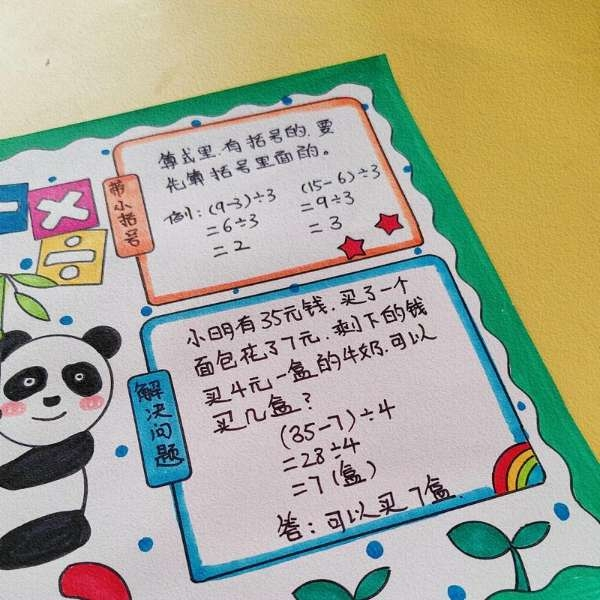 带小括号
算式里,有括号的,要
先算括号里面的。
例:(9-3)÷3
=6÷3
=2
(15-6)÷3
=9÷3
=3
解决问题
小明有35元钱,买了一个
面包花了7元,剩下的钱
买4元一盒的牛奶,可以
买几盒?
(35-7)÷4
=28÷4
=7(盒)
答:可以买7盒.
×
÷